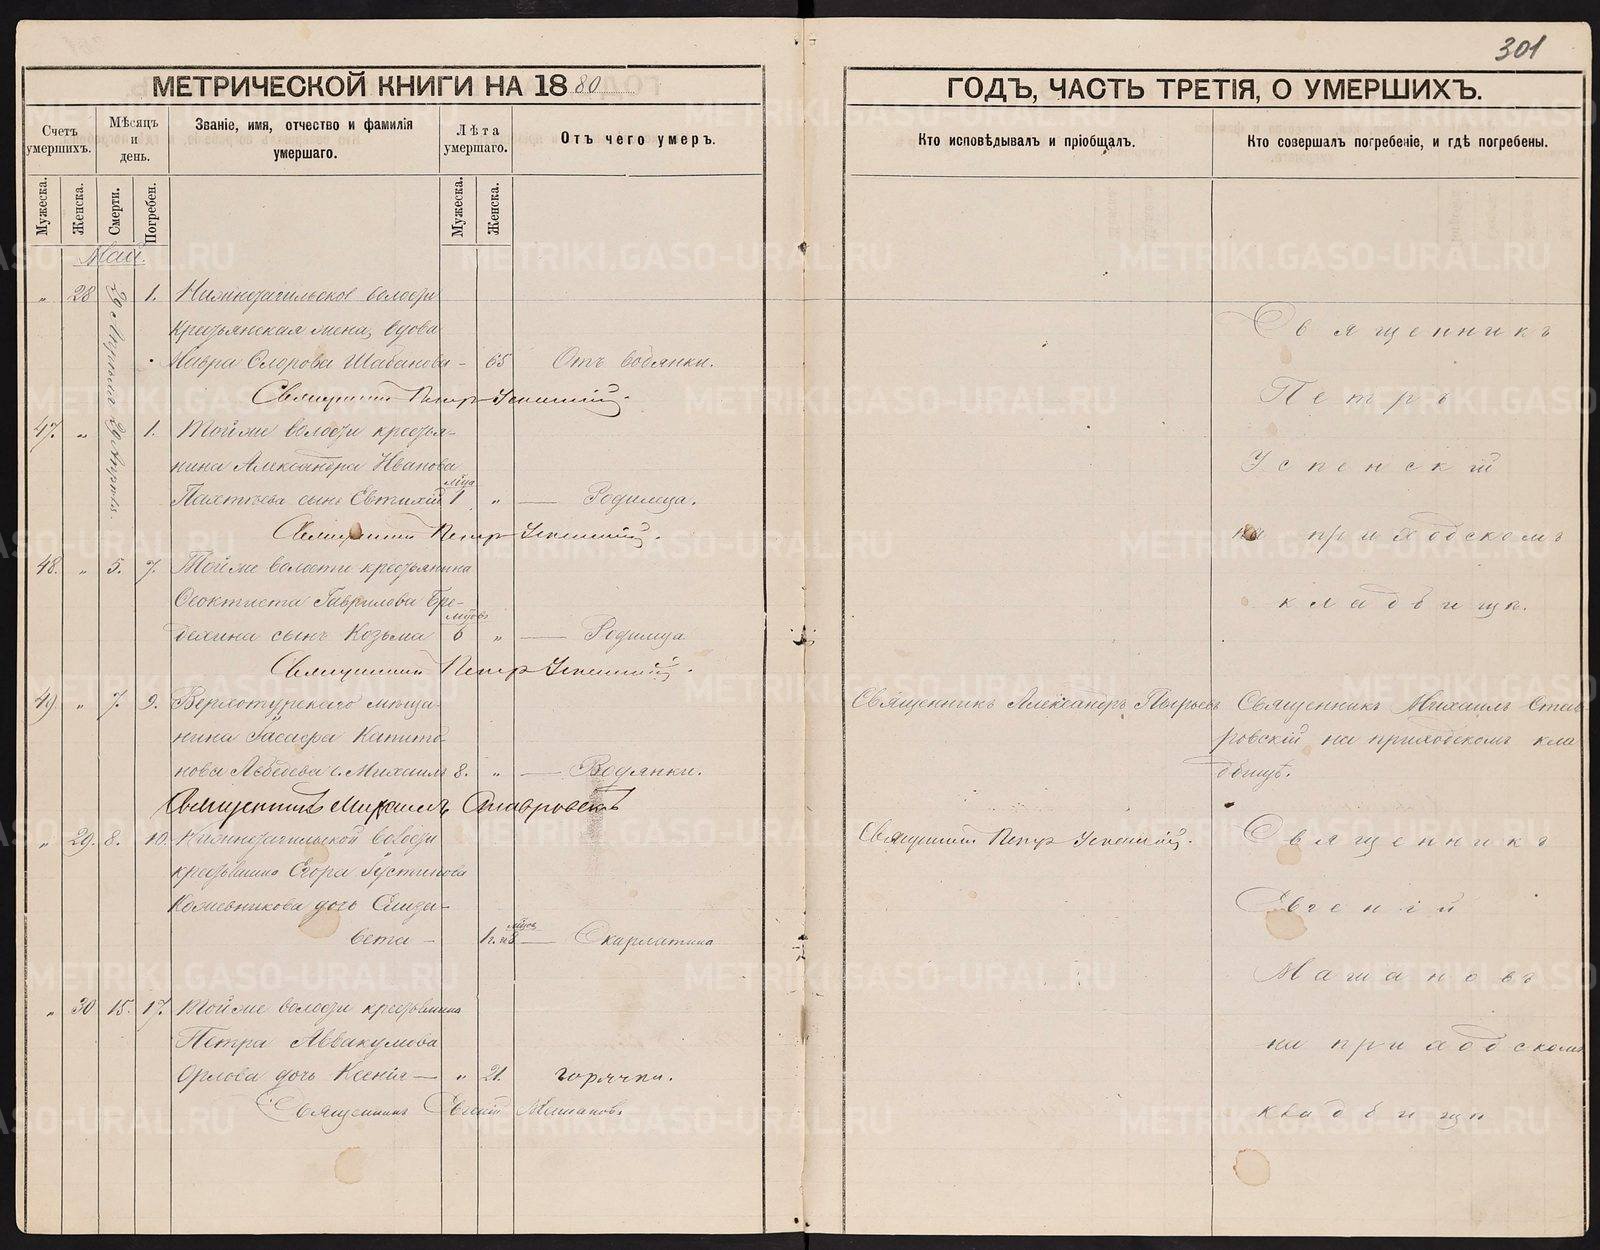 301
МЕТРИЧЕСКОЙ КНИГИ НА 1880
ГОДЪ, ЧАСТЬ ТРЕТІЯ, О УМЕРШИХЪ.
Счетъ умершихъ.
Мѣсяцъ и день.
Званіе, имя, отчество и фамилія умершаго.
Лѣта умершаго.
Отъ чего умеръ.
Кто исповѣдывалъ и пріобщалъ.
Кто совершалъ погребеніе, и гдѣ погребены.
Мужеска.
Женска.
Смерти.
Погребен.
Мужеска.
Женска.
Май.
„ 28 29 Апрѣля 1. Нижнетагильской волости
крестьянская жена, вдова
Шабанова – 65 Отъ водянки.
Священникъ Петръ Успенскій.
47. „ 29 Апрѣля 1. Тойже волости крестья-
нина Александра Иванова
сынъ Евтихій 1 мца „ — Родимца.
Священникъ Петръ Успенскій.
48. „ 5. 7. Тойже волости крестьянина
Ѳеоктиста Гаврилова Бре-
сынъ Козьма 6 мцовъ „ — Родимца
Священникъ Петръ Успенскій.
49 „ 7. 9. Верхотурскаго мѣща-
нина Капито-
нова Лебедева с. Михаилъ 8. „ — Водянки.
Священникъ Михаилъ Ставровскій
„ 29. 8. 10. Нижнетагильской волости
крестьянина Егора Густинова
Кожевникова дочь Елиза-
вета – 1 г. и 8 мцовъ — Скарлатина
„ 30 15. 17. Тойже волости крестьянина
Петра Аввакумова
Орлова дочь Ксенія — „ 21. горячки.
Священникъ Евгеній Машановъ
Священникъ
Петръ
Успенскій
на приходскомъ
кладбищѣ.
Священникъ Александръ Пырьевъ
Священникъ Михаилъ Став-
ровскій на приходскомъ кла-
дбищѣ.
Священникъ Петръ Успенскій.
Священникъ
Евгеній
Машановъ
на приходскомъ
кладбищѣ
METRIKI.GASO-URAL.RU